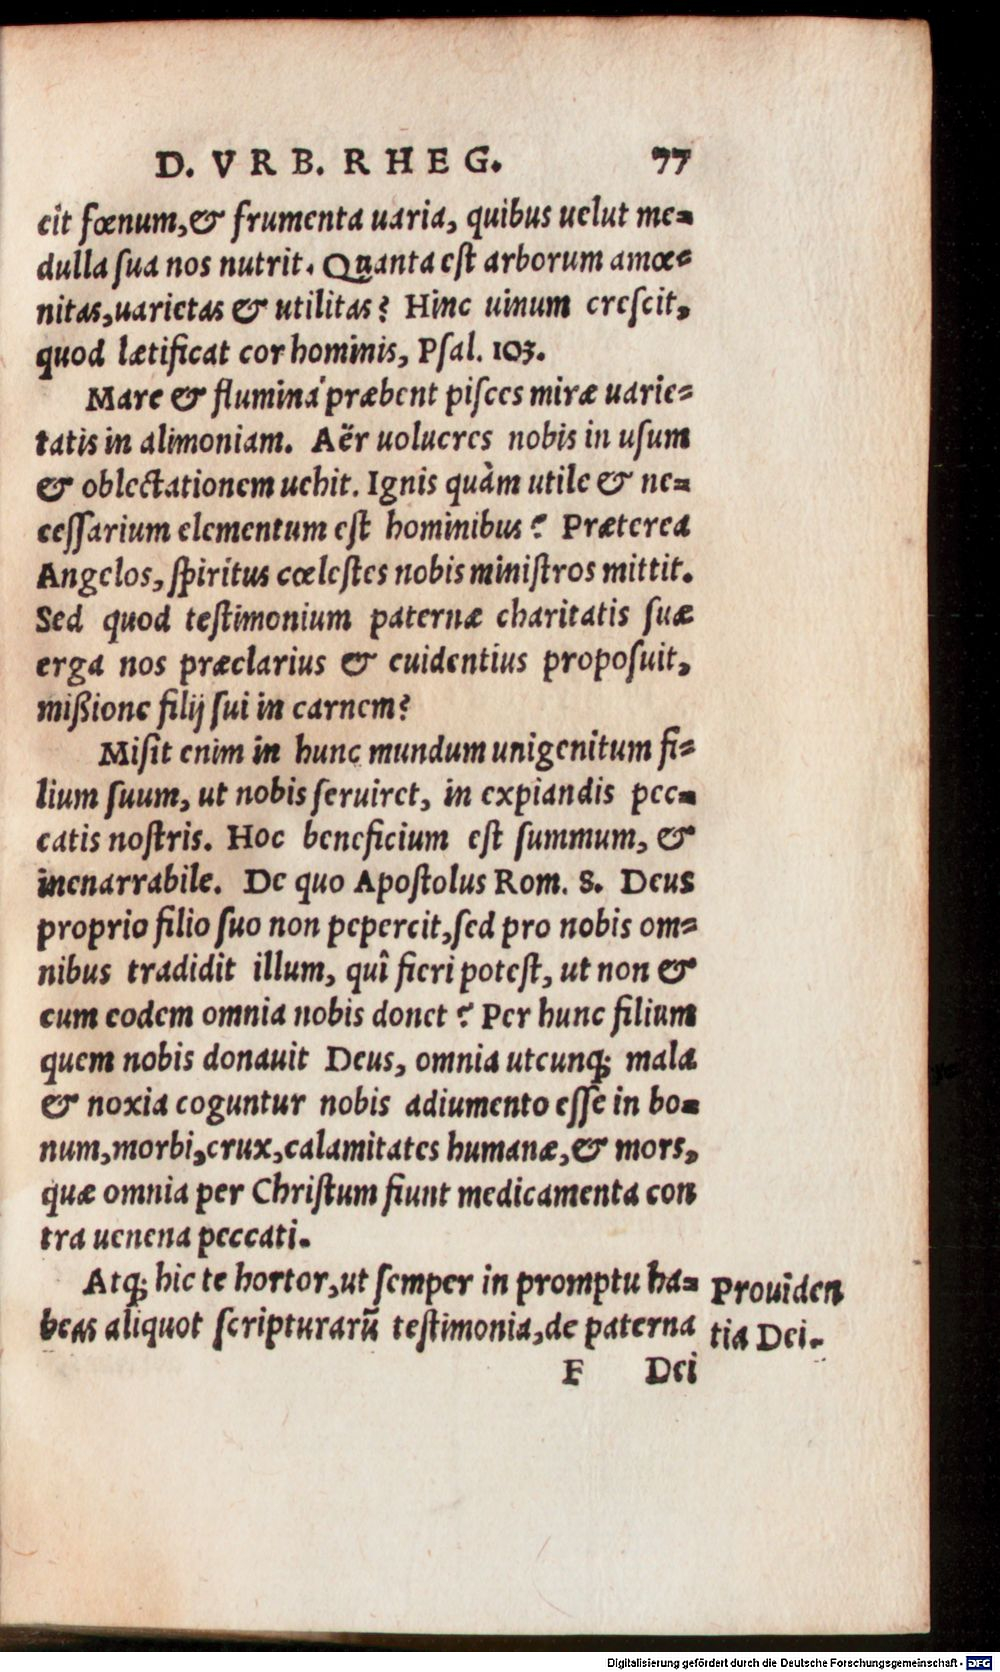 D. VRB. RHEG. 77
cit fœnum,& frumenta uaria, quibus uelut me=
dulla sua nos nutrit. Quanta est arborum amœ=
nitas,uarietas & utilitas? Hinc uinum crescit,
quod lætificat cor hominis, Psal. 103.
Mare & flumina præbent pisces miræ uarie=
tatis in alimoniam. Aër uolucres nobis in usum
& oblectationem uehit. Ignis quàm utile & ne=
cessarium elementum est hominibus? Præterea
Angelos, spiritus cœlestes nobis ministros mittit.
Sed quod testimonium paternæ charitatis suæ
erga nos præclarius & euidentius proposuit,
mißione filij sui in carnem?
Misit enim in hunc mundum unigenitum fi=
lium suum, ut nobis seruiret, in expiandis pec=
catis nostris. Hoc beneficium est summum, &
inenarrabile. De quo Apostolus Rom. 8. Deus
proprio filio suo non pepercit,sed pro nobis om=
nibus tradidit illum, quî fieri potest, ut non &
cum eodem omnia nobis donet? Per hunc filium
quem nobis donauit Deus, omnia utcunq; mala
& noxia coguntur nobis adiumento esse in bo=
num,morbi,crux,calamitates humanæ,& mors,
quæ omnia per Christum fiunt medicamenta con
tra uenena peccati.
Atq; hic te hortor,ut semper in promptu ha=
beas aliquot scripturarũ testimonia,de paterna
Prouiden
tia Dei.
F Dei
Digitalisierung gefördert durch die Deutsche Forschungsgemeinschaft - DFG